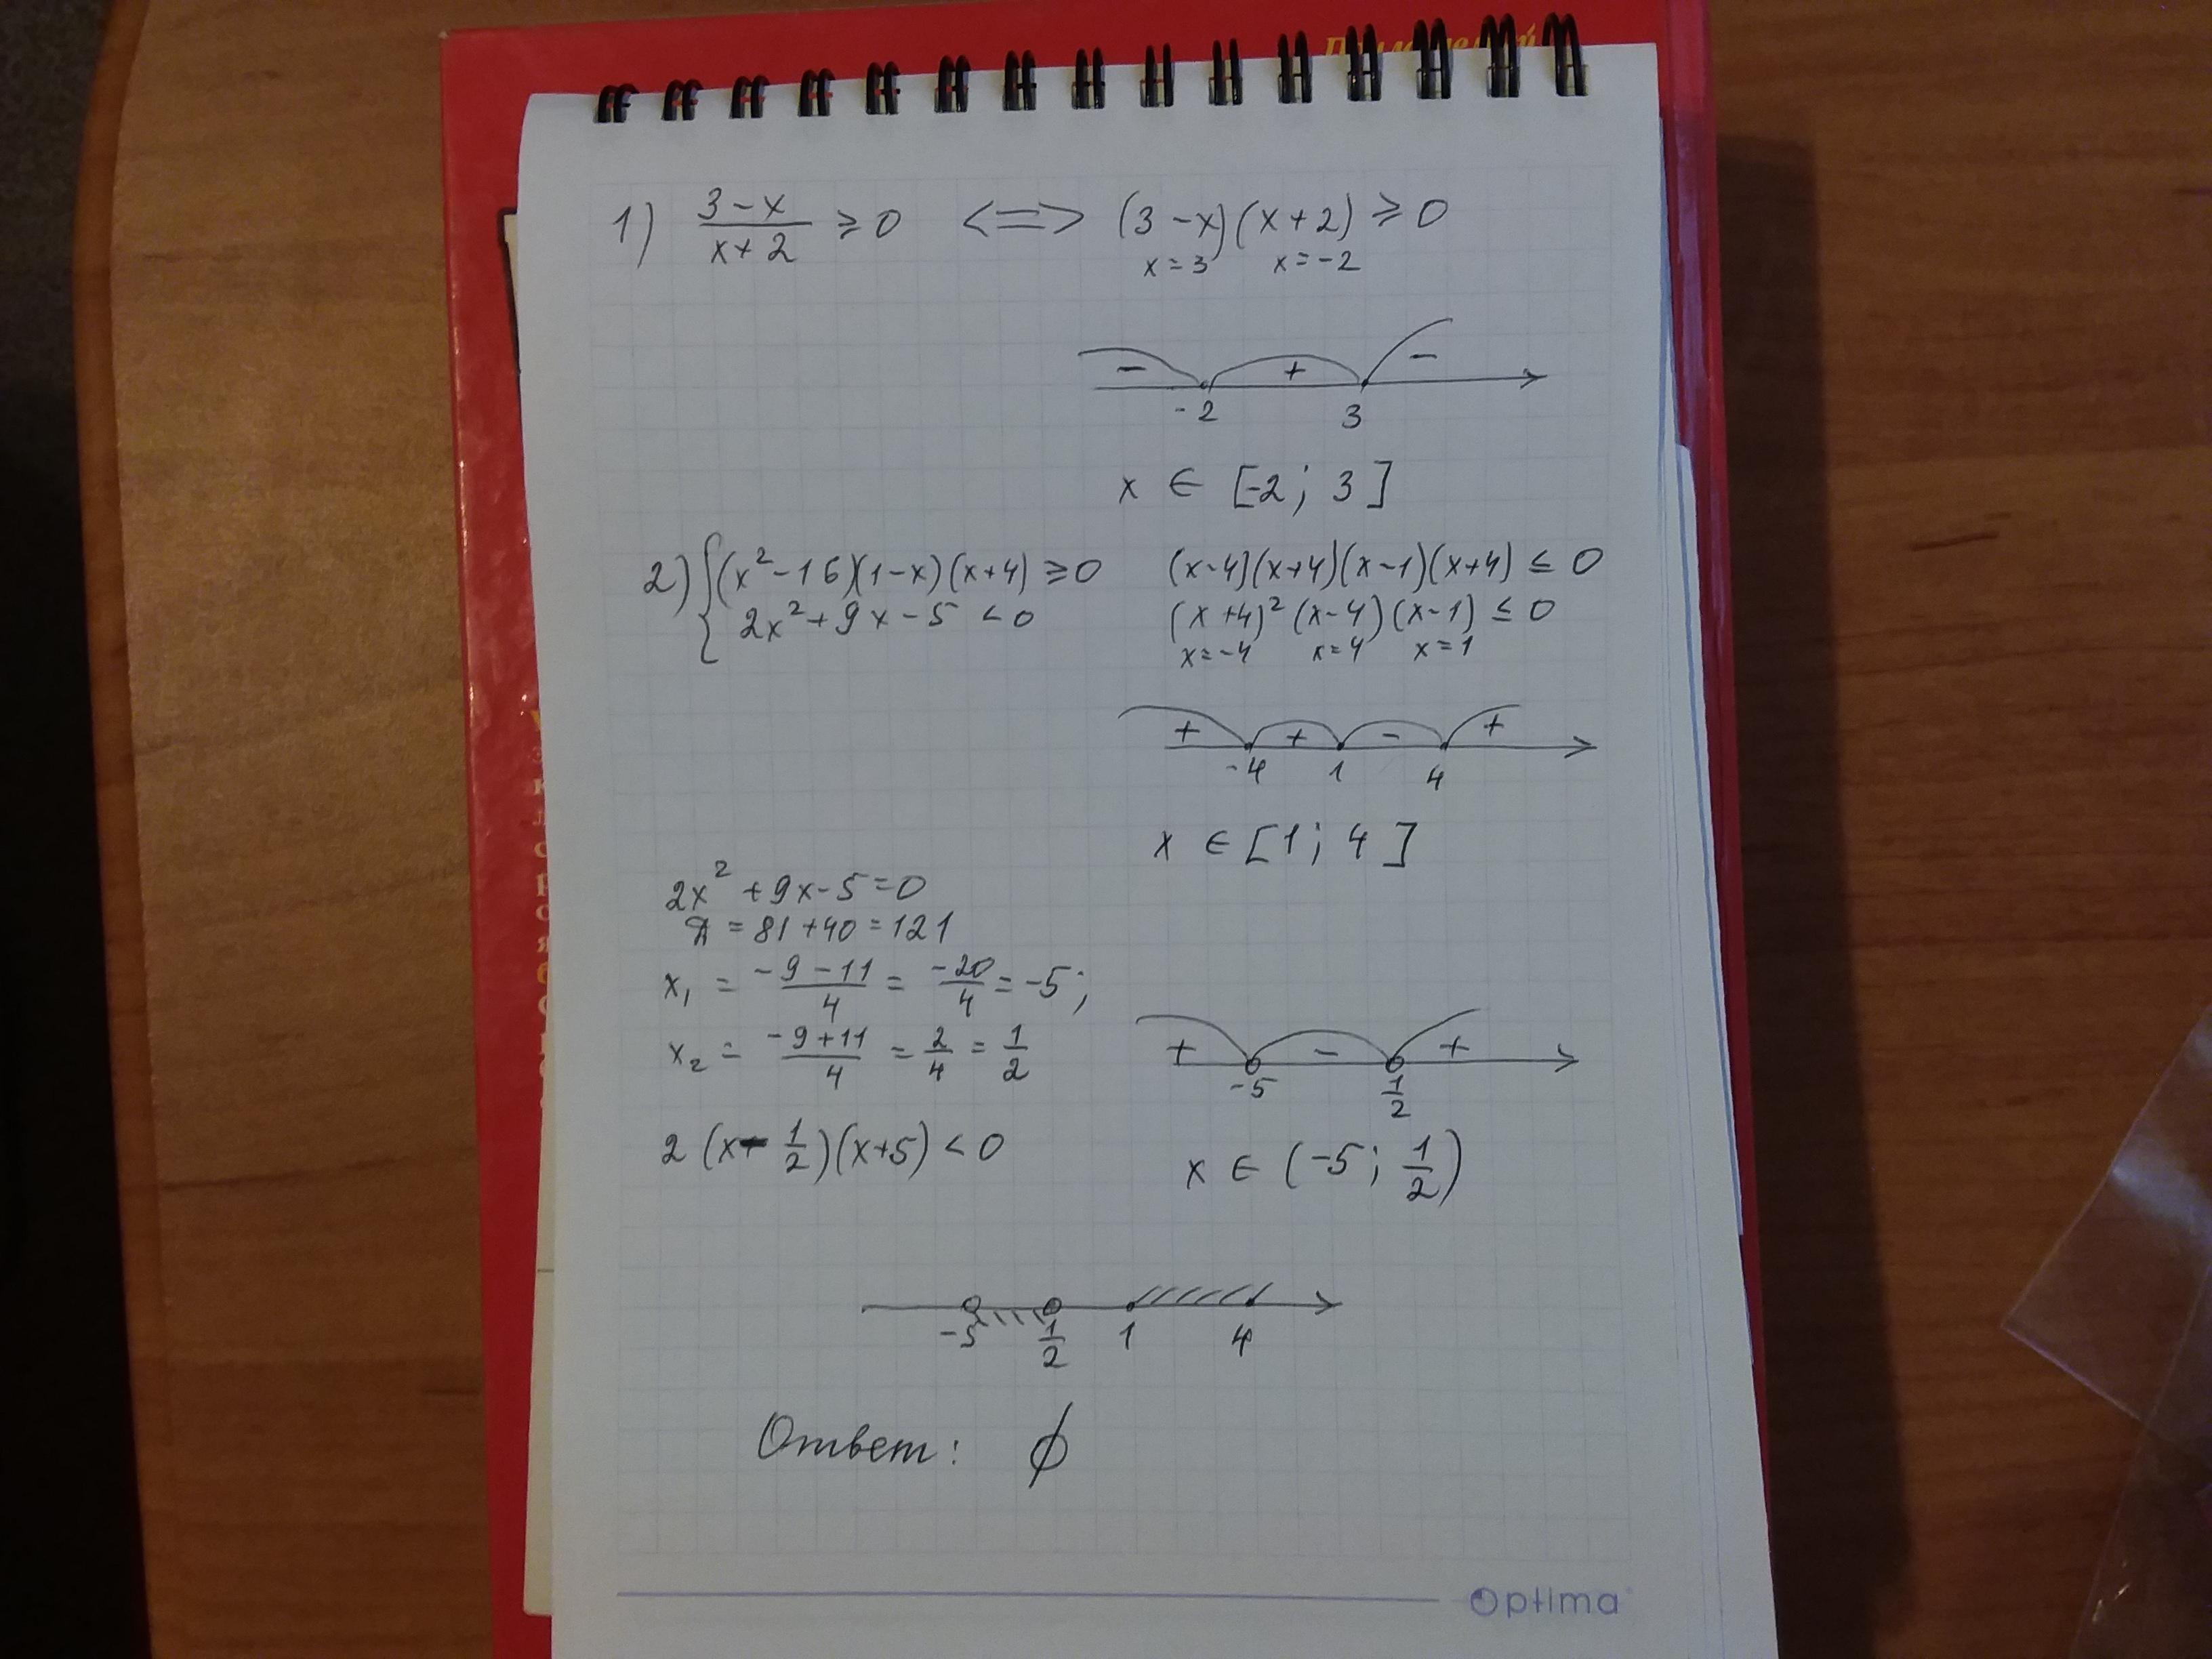 1) (3-x)/(x+2) ≥ 0 <=> (3-x)(x+2) ≥ 0
x=3 x=-2
- + -
-2 3
x ∈ [-2; 3]
2) { (x²-16)(1-x)(x+4) ≥ 0
2x²+9x-5 < 0
(x-4)(x+4)(x-1)(x+4) ≤ 0
(x+4)²(x-4)(x-1) ≤ 0
x=-4 x=4 x=1
+ + - +
-4 1 4
x ∈ [1; 4]
2x²+9x-5=0
Д = 81+40=121
x₁ = (-9-11)/4 = -20/4 = -5;
x₂ = (-9+11)/4 = 2/4 = 1/2
+ - +
-5 1/2
2(x-1/2)(x+5) < 0
x ∈ (-5; 1/2)
-5 1/2 1 4
Ответ: ∅
Optima